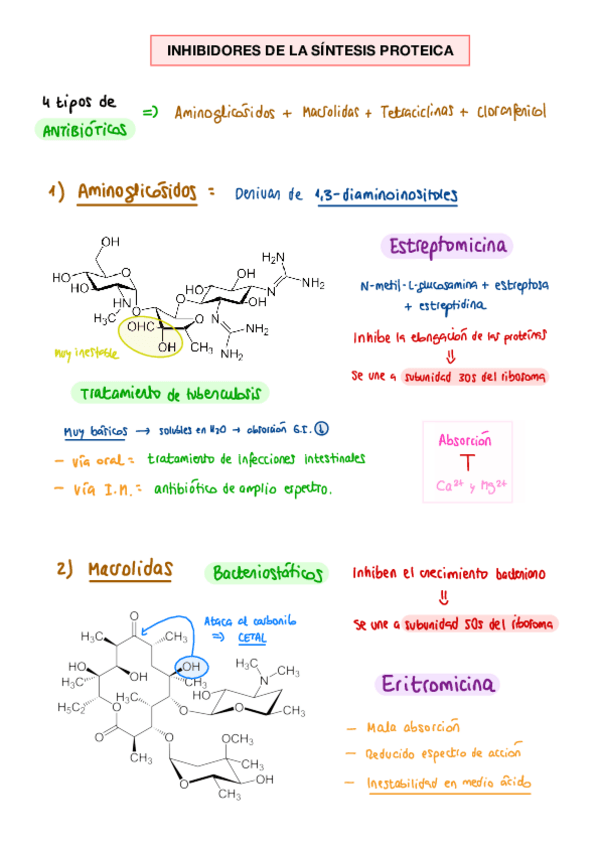 INHIBIDORES DE LA SÍNTESIS PROTEICA
4 tipos de
ANTIBIÓTICOS
=> Aminoglicósidos + Macrolidas + Tetraciclinas + Cloranfenicol
1) Aminoglicósidos = Derivan de 1,3-diaminoinositoles
Estreptomicina
N-metil-L-glucosamina + estreptosa
+ estreptidina
Inhibe la elongación de las proteínas
⇓
Se une a subunidad 30S del ribosoma
OH
O
HO
HO
HN
H₃C
OH
O
O
HO
OH
OH
N
H₂N
NH₂
N
NH₂
NH₂
OHC
O
OH
CH₃
muy inestable
Tratamiento de tuberculosis
Muy básicos → solubles en H₂O → absorción G.I. ↓
- vía oral = tratamiento de infecciones intestinales
- vía I.M. = antibiótico de amplio espectro.
Absorción
Ca²⁺ y Mg²⁺
2) Macrolidas
Bacteriostáticos
Inhiben el crecimiento bacteriano
⇓
Se une a subunidad 50S del ribosoma
Ataca al carbonilo
=> CETAL
O
H₃C
CH₃
HO
OH
OH
H₃C
CH₃
H₅C₂
O
O
H₃C
O
HO
H₃C
N
CH₃
O
CH₃
CH₃
O
OCH₃
CH₃
O
OH
CH₃
Eritromicina
- Mala absorción
- Reducido espectro de acción
- Inestabilidad en medio ácido